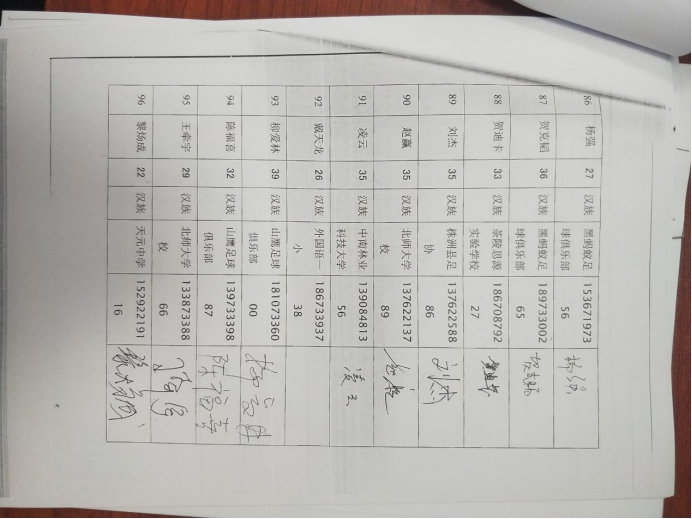 86 杨强 27 汉族 黑蚂蚁足球俱乐部 15367197356 杨强
87 贺克韬 36 汉族 黑蚂蚁足球俱乐部 18973300265 贺克韬
88 贺迪卡 33 汉族 茶陵思源实验学校 18670879227 贺迪卡
89 刘杰 35 汉族 株洲县足协 13762258886 刘杰
90 赵赢 35 汉族 北师大学校 13762213789 赵赢
91 凌云 35 汉族 中南林业科技大学 13908481356 凌云
92 戴天龙 26 汉族 外国语一小 18673393738
93 柳爱林 39 汉族 山鹰足球俱乐部 18107336000
94 陈福喜 32 汉族 山鹰足球俱乐部 13973339887 陈福喜
95 王牵宇 29 汉族 北师大学校 13387338866
96 黎炀成 22 汉族 天元中学 15292219116